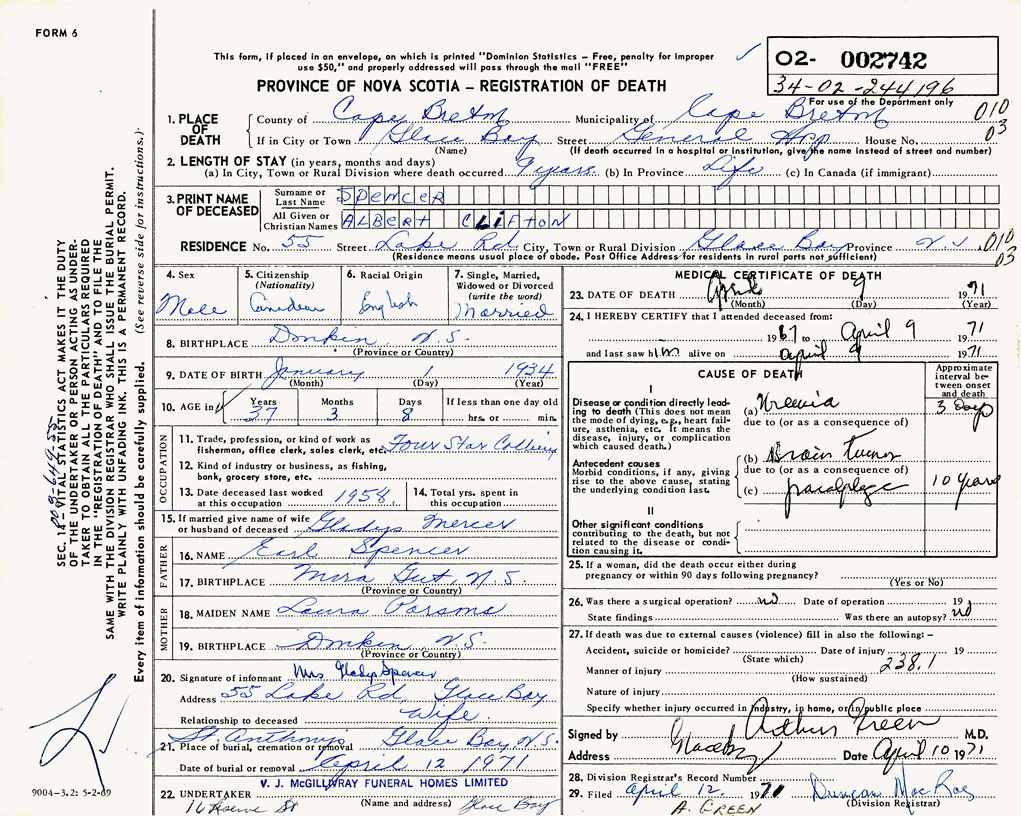 FORM 6
This form, if placed in an envelope, on which is printed "Dominion Statistics – Free, penalty for improper
use $50," and properly addressed will pass through the mail "FREE"
02- 002742
34-02-244196
For use of the Department only
PROVINCE OF NOVA SCOTIA – REGISTRATION OF DEATH
1. PLACE OF DEATH
County of Cape Breton Municipality of Cape Breton 010
If in City or Town Glace Bay Street General Hosp House No. 03
(Name) (If death occurred in a hospital or institution, give the name instead of street and number)
2. LENGTH OF STAY (in years, months and days)
(a) In City, Town or Rural Division where death occurred 9 years. (b) In Province Life (c) In Canada (if immigrant)
3. PRINT NAME OF DECEASED
Surname or Last Name SPENCER
All Given or Christian Names ALBERT CLIFTON
RESIDENCE No. 55 Street Lake Rd City, Town or Rural Division Glace Bay Province N.S. 010
(Residence means usual place of abode. Post Office Address for residents in rural parts not sufficient) 03
4. Sex
Male
5. Citizenship
(Nationality)
Canadian
6. Racial Origin
English
7. Single, Married,
Widowed or Divorced
(write the word)
Married
8. BIRTHPLACE Donkin N.S.
(Province or Country)
9. DATE OF BIRTH January 1 1934
(Month) (Day) (Year)
10. AGE in Years Months Days If less than one day old
37 3 8 hrs. or min.
OCCUPATION
11. Trade, profession, or kind of work as
fisherman, office clerk, sales clerk, etc. Four Star Colliery
12. Kind of industry or business, as fishing,
bank, grocery store, etc.
13. Date deceased last worked
at this occupation 1958
14. Total yrs. spent in
this occupation
15. If married give name of wife
or husband of deceased Gladys Mercer
FATHER
16. NAME Earl Spencer
17. BIRTHPLACE Mira Gut, N.S.
(Province or Country)
MOTHER
18. MAIDEN NAME Laura Parsons
19. BIRTHPLACE Donkin N.S.
(Province or Country)
20. Signature of informant Mrs Gladys Spencer
Address 55 Lake Rd, Glace Bay
Relationship to deceased Wife.
21. Place of burial, cremation or removal St. Anthonys Glace Bay, N.S.
Date of burial or removal April 12 1971
V. J. McGILLIVRAY FUNERAL HOMES LIMITED
22. UNDERTAKER (Name and address)
16 Reserve St Glace Bay
MEDICAL CERTIFICATE OF DEATH
23. DATE OF DEATH April 9 1971
(Month) (Day) (Year)
24. I HEREBY CERTIFY that I attended deceased from:
1967 to April 9 1971
and last saw him alive on April 9 1971
CAUSE OF DEATH
Approximate
interval be-
tween onset
and death
I
Disease or condition directly lead-
ing to death (This does not mean
the mode of dying, e.g., heart fail-
ure, asthenia, etc. It means the
disease, injury, or complication
which caused death.)
(a) Uremia 3 Days
due to (or as a consequence of)
Antecedent causes
Morbid conditions, if any, giving
rise to the above cause, stating
the underlying condition last.
(b) Brain tumor
due to (or as a consequence of)
(c) paraplege 10 years
II
Other significant conditions
contributing to the death, but not
related to the disease or condi-
tion causing it.
25. If a woman, did the death occur either during
pregnancy or within 90 days following pregnancy?
(Yes or No)
26. Was there a surgical operation? no Date of operation 19
State findings Was there an autopsy? no
27. If death was due to external causes (violence) fill in also the following: –
Accident, suicide or homicide? Date of injury 19
(State which)
Manner of injury 238.1
(How sustained)
Nature of injury
Specify whether injury occurred in industry, in home, or in public place
Signed by Arthur Green M.D.
Address Glace Bay Date April 10 1971
28. Division Registrar's Record Number
29. Filed April 12 1971 Duncan MacRae
A. GREEN (Division Registrar)
SEC. 14 – VITAL STATISTICS ACT MAKES IT THE DUTY
OF THE UNDERTAKER OR PERSON ACTING AS UNDER-
TAKER TO OBTAIN ALL THE PARTICULARS REQUIRED
IN THE "REGISTRATION OF DEATH" AND TO FILE THE
SAME WITH THE DIVISION REGISTRAR WHO SHALL ISSUE THE BURIAL PERMIT.
WRITE PLAINLY WITH UNFADING INK. THIS IS A PERMANENT RECORD.
Every item of information should be carefully supplied. (See reverse side for instructions.)
9004–3.2: 5-2-69